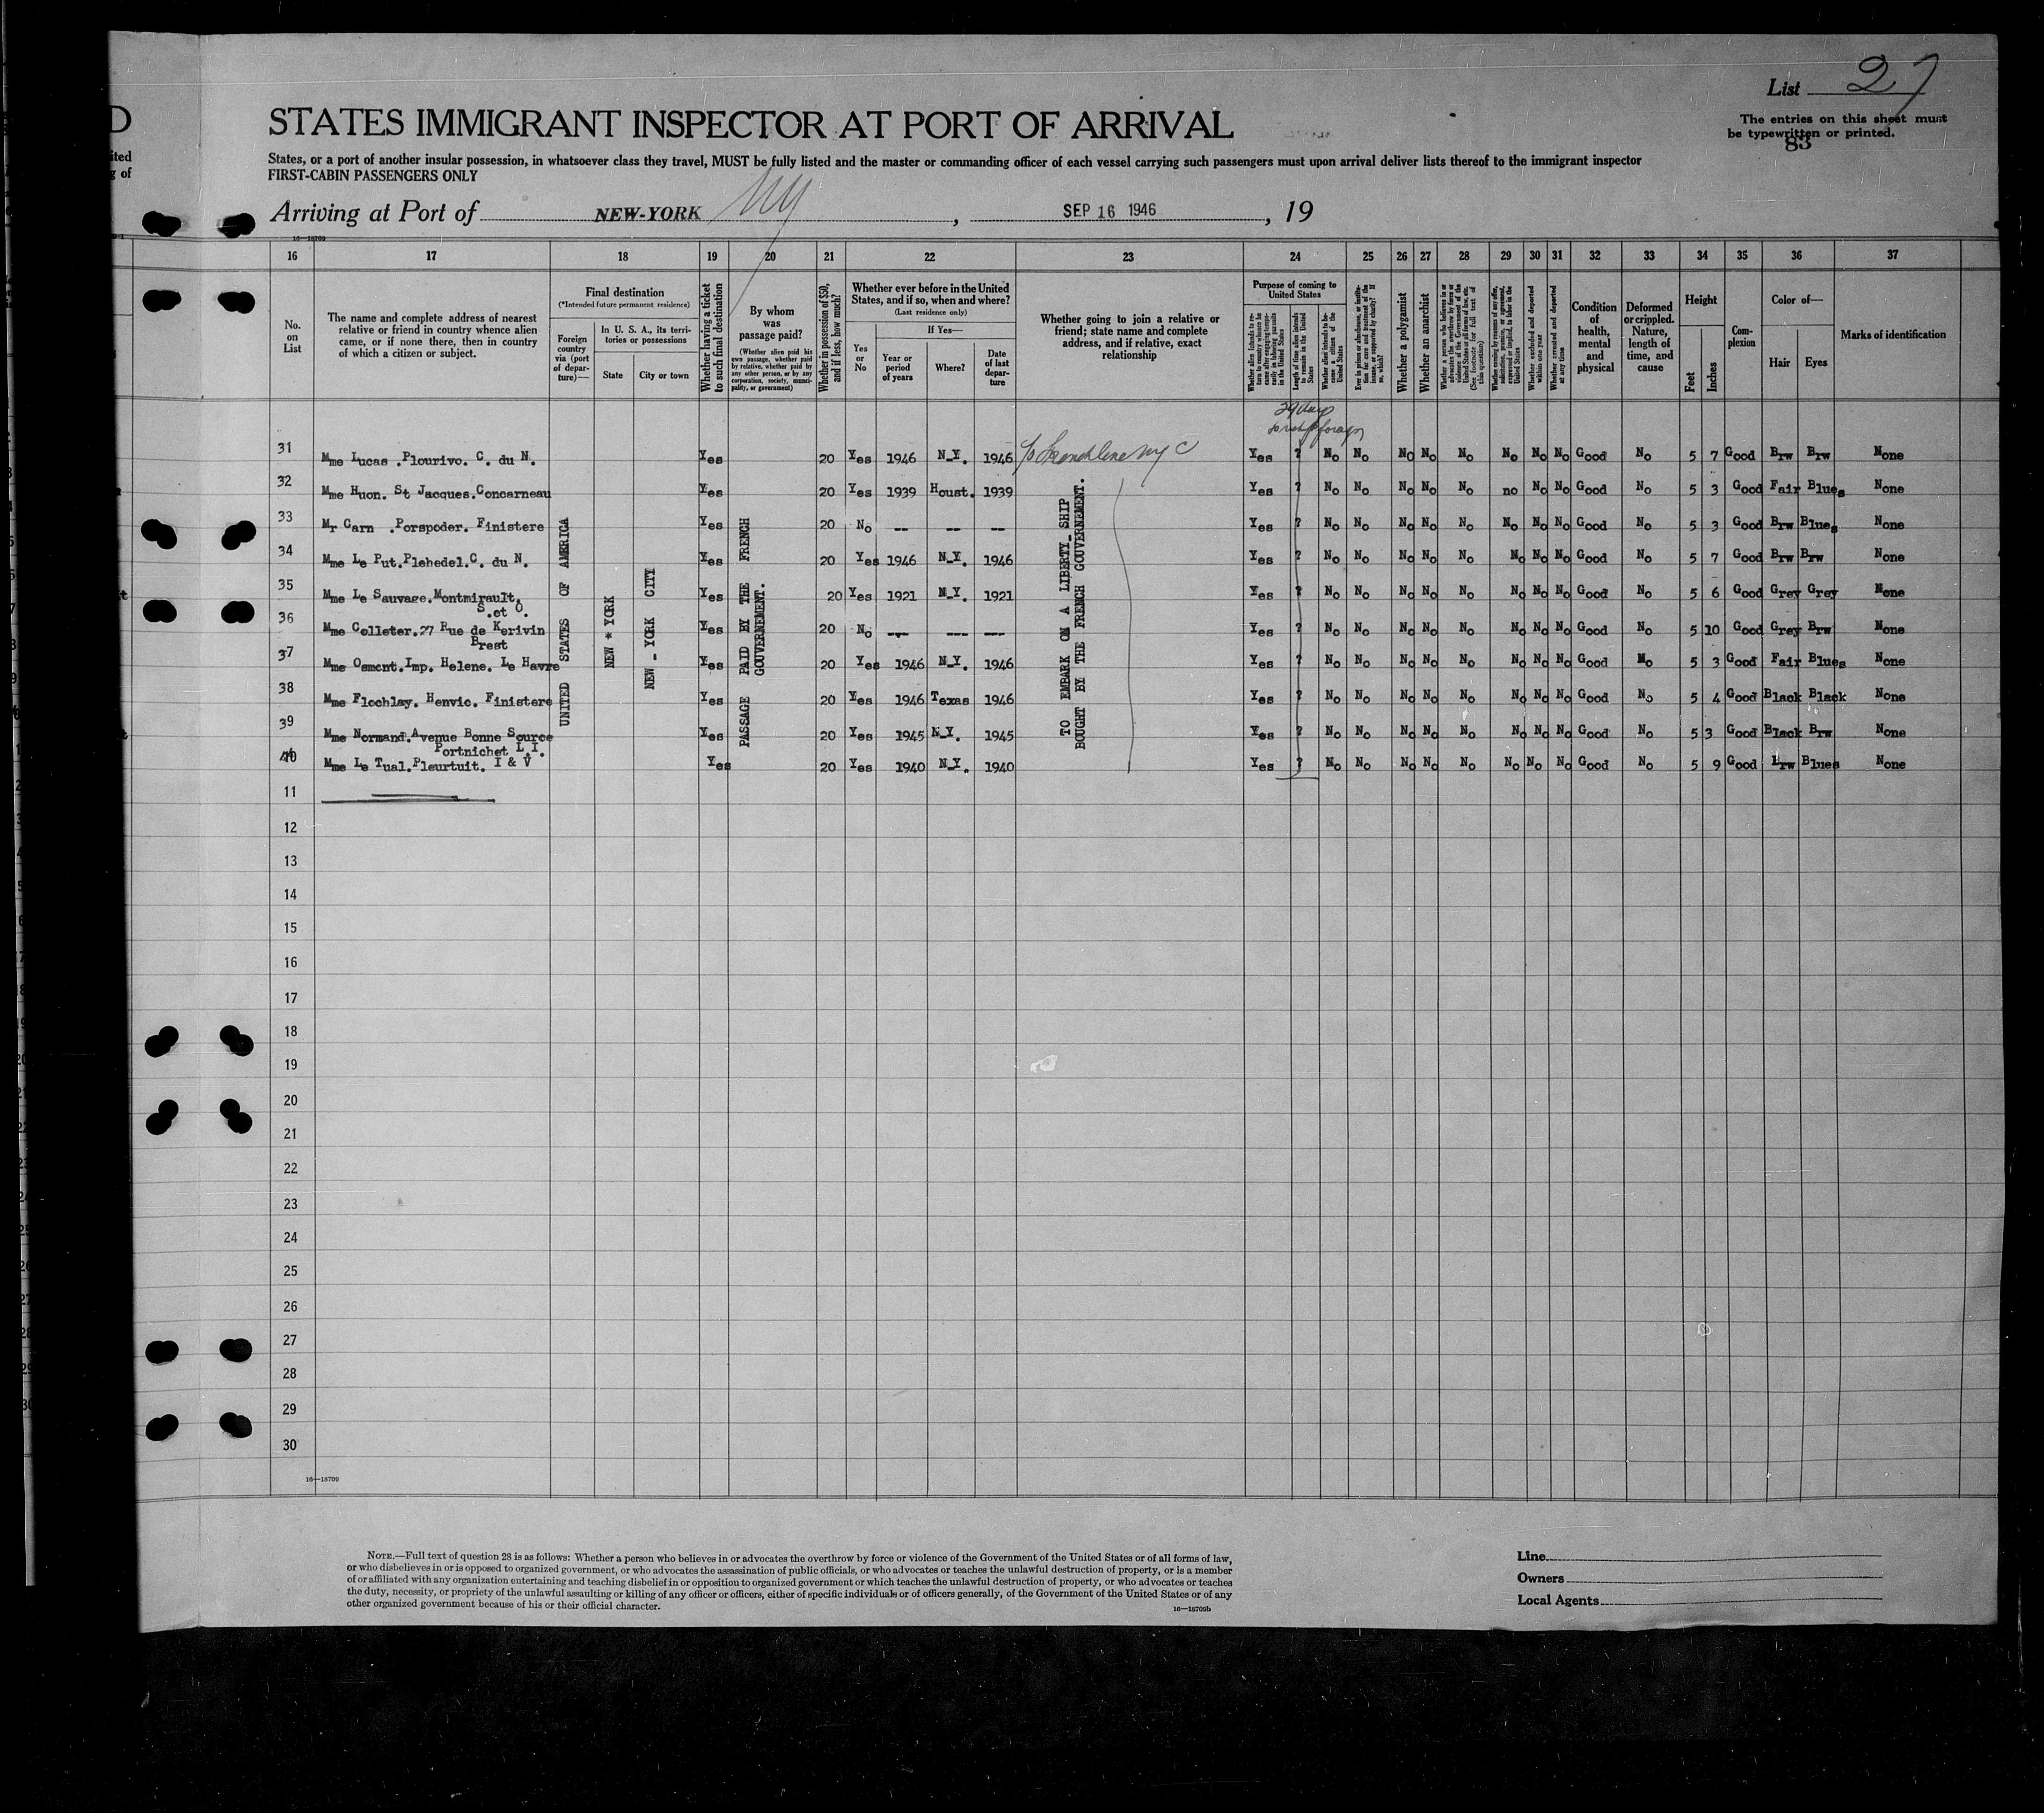 List 27
The entries on this sheet must
be typewritten or printed.
83
STATES IMMIGRANT INSPECTOR AT PORT OF ARRIVAL
States, or a port of another insular possession, in whatsoever class they travel, MUST be fully listed and the master or commanding officer of each vessel carrying such passengers must upon arrival deliver lists thereof to the immigrant inspector
FIRST-CABIN PASSENGERS ONLY
Arriving at Port of NEW-YORK NY, SEP 16 1946, 19
16—18709
16 17 18 19 20 21 22 23 24 25 26 27 28 29 30 31 32 33 34 35 36 37
No. on List
The name and complete address of nearest relative or friend in country whence alien came, or if none there, then in country of which a citizen or subject.
Final destination
(*Intended future permanent residence)
Foreign country via (port of departure)—
In U. S. A., its territories or possessions
State
City or town
Whether having a ticket to such final destination
By whom was passage paid?
(Whether alien paid his own passage, whether paid by relative, whether paid by any other person, or by any corporation, society, municipality, or government)
Whether in possession of $50, and if less, how much?
Whether ever before in the United States, and if so, when and where?
(Last residence only)
Yes or No
If Yes—
Year or period of years
Where?
Date of last departure
Whether going to join a relative or friend; state name and complete address, and if relative, exact relationship
Purpose of coming to United States
Whether alien intends to return to country whence he came after engaging temporarily in laboring pursuits in the United States
Length of time alien intends to remain in the United States
Whether alien intends to become a citizen of the United States
Ever in prison or almshouse, or institution for care and treatment of the insane, or supported by charity? If so, which?
Whether a polygamist
Whether an anarchist
Whether a person who believes in or advocates the overthrow by force or violence of the Government of the United States or all forms of law, etc. (See footnote for full text of this question)
Whether coming by reason of any offer, solicitation, promise, or agreement, expressed or implied, to labor in the United States
Whether excluded and deported within one year
Whether arrested and deported at any time
Condition of health, mental and physical
Deformed or crippled. Nature, length of time, and cause
Height
Feet
Inches
Complexion
Color of—
Hair
Eyes
Marks of identification
29 days
31 Mme Lucas .Plourivo. C. du N. Yes 20 Yes 1946 N_Y. 1946 Yes ? No No No No No No No No Good No 5 7 Good Brw Brw None
32 Mme Huon. St Jacques.Concarneau Yes 20 Yes 1939 Houst. 1939 Yes ? No No No No No no No No Good No 5 3 Good Fair Blues None
33 Mr Carn .Porspoder. Finistere Yes 20 No -- -- -- Yes ? No No No No No No No No Good No 5 3 Good Brw Blues None
34 Mme Le Put.Plehedel.C. du N. Yes 20 Yes 1946 N_Y. 1946 Yes ? No No No No No No No No Good No 5 7 Good Brw Brw None
35 Mme Le Sauvage.Montmirault. S.et O. Yes 20 Yes 1921 N_Y. 1921 Yes ? No No No No No No No No Good No 5 6 Good Grey Grey None
36 Mme Colleter.27 Rue de Kerivin Brest Yes 20 No --- --- --- Yes ? No No No No No No No No Good No 5 10 Good Grey Brw None
37 Mme Osmont.Imp. Helene. Le Havre Yes 20 Yes 1946 N_Y. 1946 Yes ? No No No No No No No No Good No 5 3 Good Fair Blues None
38 Mme Flochlay. Henvic. Finistere Yes 20 Yes 1946 Texas 1946 Yes ? No No No No No No No No Good No 5 4 Good Black Black None
39 Mme Normand.Avenue Bonne Source Portnichet L.I. Yes 20 Yes 1945 N_Y. 1945 Yes ? No No No No No No No No Good No 5 3 Good Black Brw None
40 Mme Le Tual.Pleurtuit. I & V Yes 20 Yes 1940 N_Y. 1940 Yes ? No No No No No No No No Good No 5 9 Good Brw Blues None
UNITED STATES OF AMERICA
NEW * YORK
NEW _ YORK CITY
PASSAGE PAID BY THE FRENCH
GOUVERNEMENT.
TO EMBARK ON A LIBERTY_ SHIP
BOUGHT BY THE FRENCH GOUVERNEMENT.
11
12
13
14
15
16
17
18
19
20
21
22
23
24
25
26
27
28
29
30
16—18709
NOTE.—Full text of question 28 is as follows: Whether a person who believes in or advocates the overthrow by force or violence of the Government of the United States or of all forms of law,
or who disbelieves in or is opposed to organized government, or who advocates the assassination of public officials, or who advocates or teaches the unlawful destruction of property, or is a member
of or affiliated with any organization entertaining and teaching disbelief in or opposition to organized government or which teaches the unlawful destruction of property, or who advocates or teaches
the duty, necessity, or propriety of the unlawful assaulting or killing of any officer or officers, either of specific individuals or of officers generally, of the Government of the United States or of any
other organized government because of his or their official character.
16—18709b
Line
Owners
Local Agents